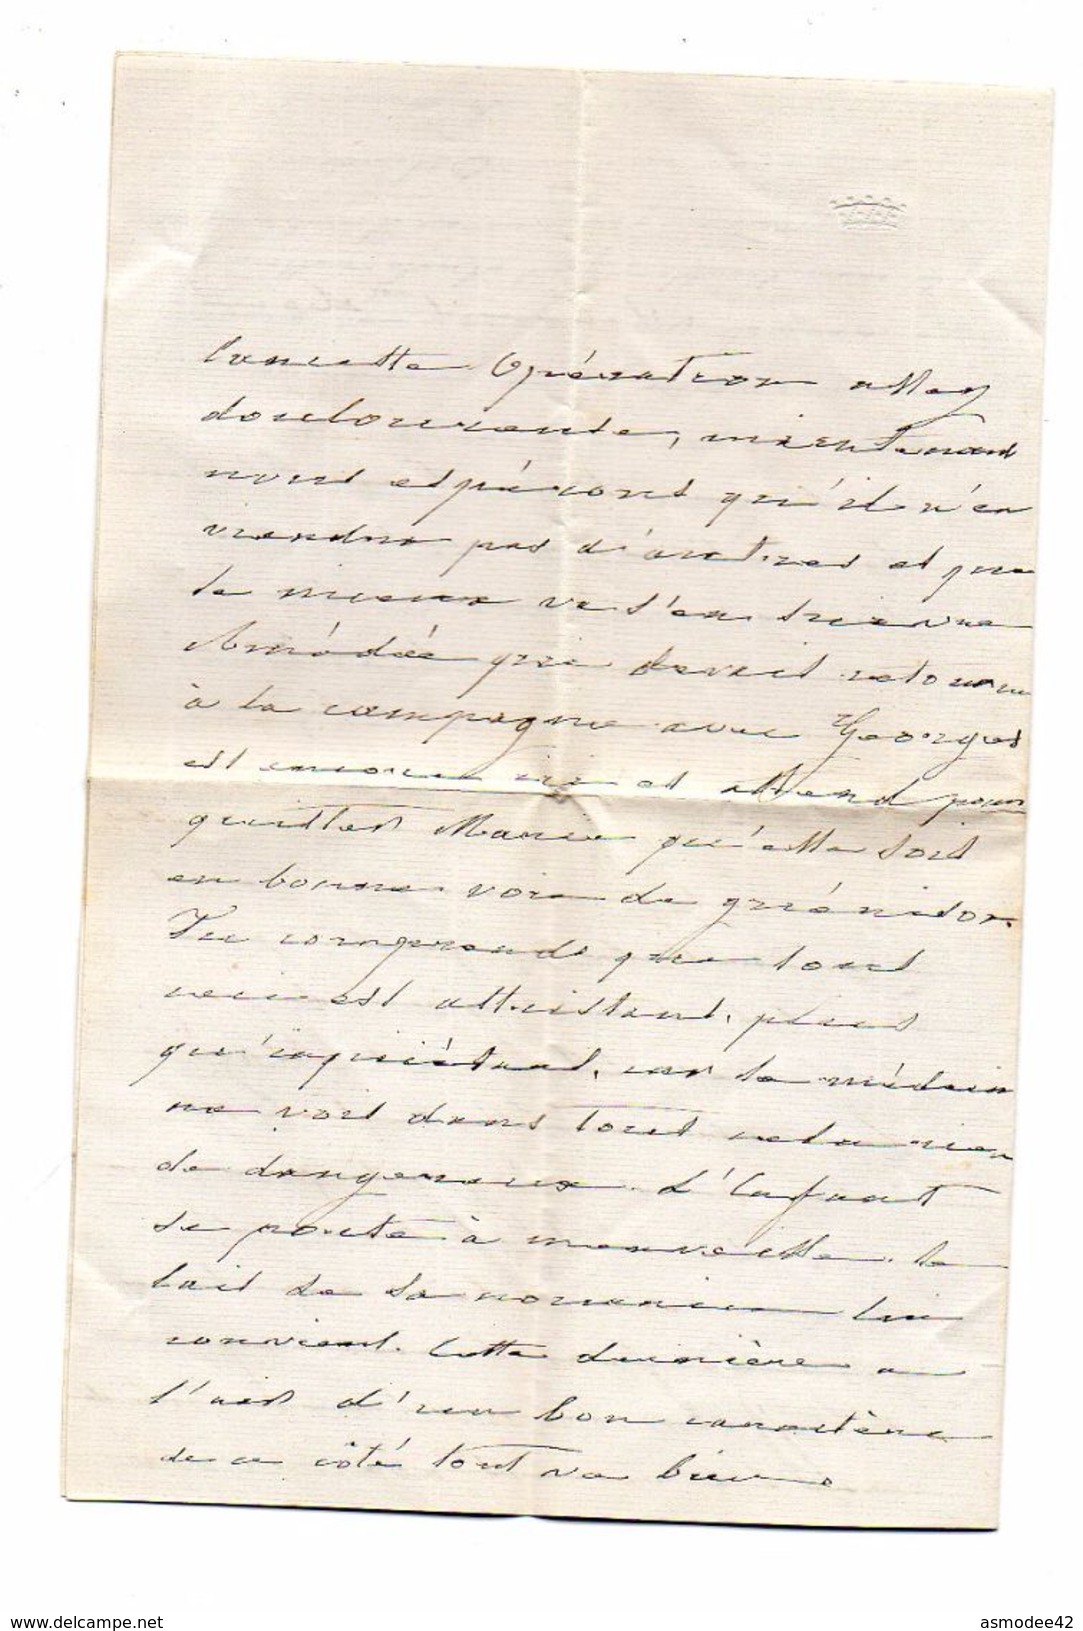 cette Opération assez
douloureuse, maintenant
nous espérons qu'il n'en
viendra pas d'autres et que
le mieux va s'en suivre
Amédée qui devait retourner
à la campagne avec Georges
est encore ici et attend pour
quitter Marie qu'elle soit
en bonne voie de guérison.
Tu comprends que tout
ceci est attristant, plus
qu'inquiétant, car le médecin
ne voit dans tout cela rien
de dangereux. L'Enfant
se porte à merveille. le
lait de sa nourrice lui
convient. Cette dernière a
l'air d'un bon caractère
de ce côté tout va bien.
www.delcampe.net
asmodee42